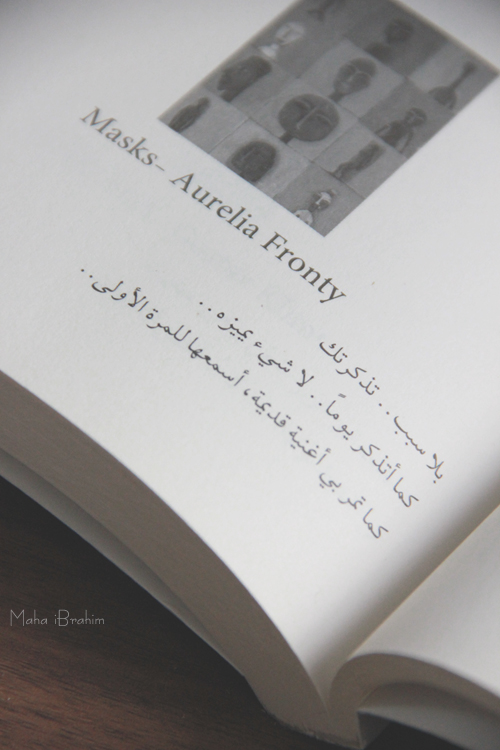 Masks- Aurelia Fronty
بلا سبب.. تذكرتك
كما أتذكر يوماً.. لا شيء يميزه..
كما تمر بي أغنية قديمة، أسمعها للمرة الأولى..
Maha iBrahim